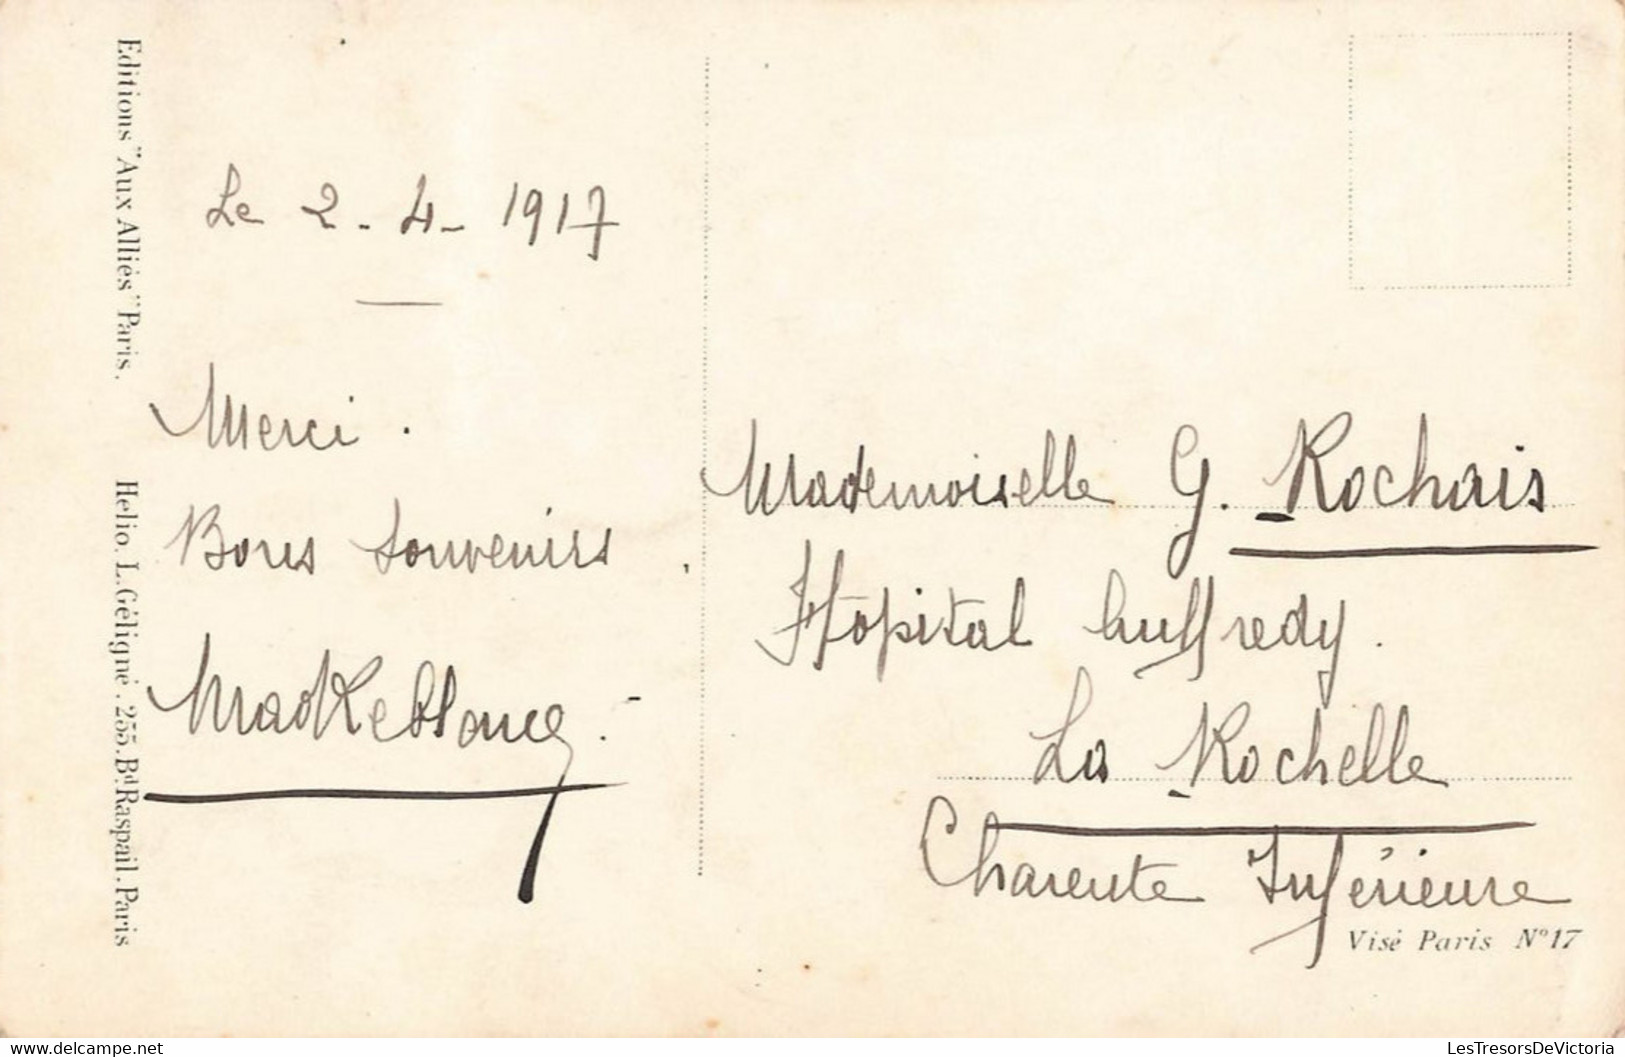 Editions "Aux Alliés" Paris.
Helio. L. Géligné. 255. Bd Raspail. Paris
Le 2-4-1917
Merci.
Bons Souvenirs.
Mademoiselle G. Rochais
Hopital Auffredy.
La Rochelle
Charente Inférieure
Visé Paris N°17
LesTresorsDeVictoria